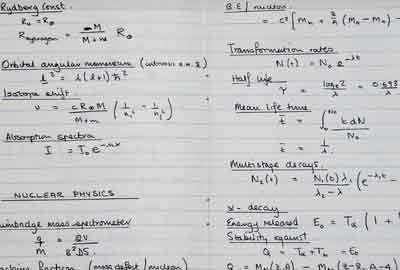 Rydberg Const.
R∞ = R∞
R hydrogen = M / M+m R∞
Orbital angular momentum
l² = l(l+1)ħ²
Isotope shift.
υ = cR∞M / M+m (1/n₁² - 1/n₂²)
Absorption spectra
I = I₀e
NUCLEAR PHYSICS
mass spectrometer
q/m = 2V / B²DS.
fraction (mass defect / nucleon)
B.E / nucleon
= c² [Mn + (Mn - Mn) -
Transformation rates
N(t) = N₀ e^-λt
Half life
τ = loge2 / λ = 0.693
Mean life time
t̄ = ∫ t dN / N₀
t̄ = 1/λ
Multistage decays.
N₂(t) = N₁(0) λ₁ / λ₂ - λ₁ (e^-λ₁t -
α - decay
Energy released E₀ = Tα (1 +
Stability against
Q = Tα + Th = E₀
Q = (Z,A) - (Z-2, A-4)